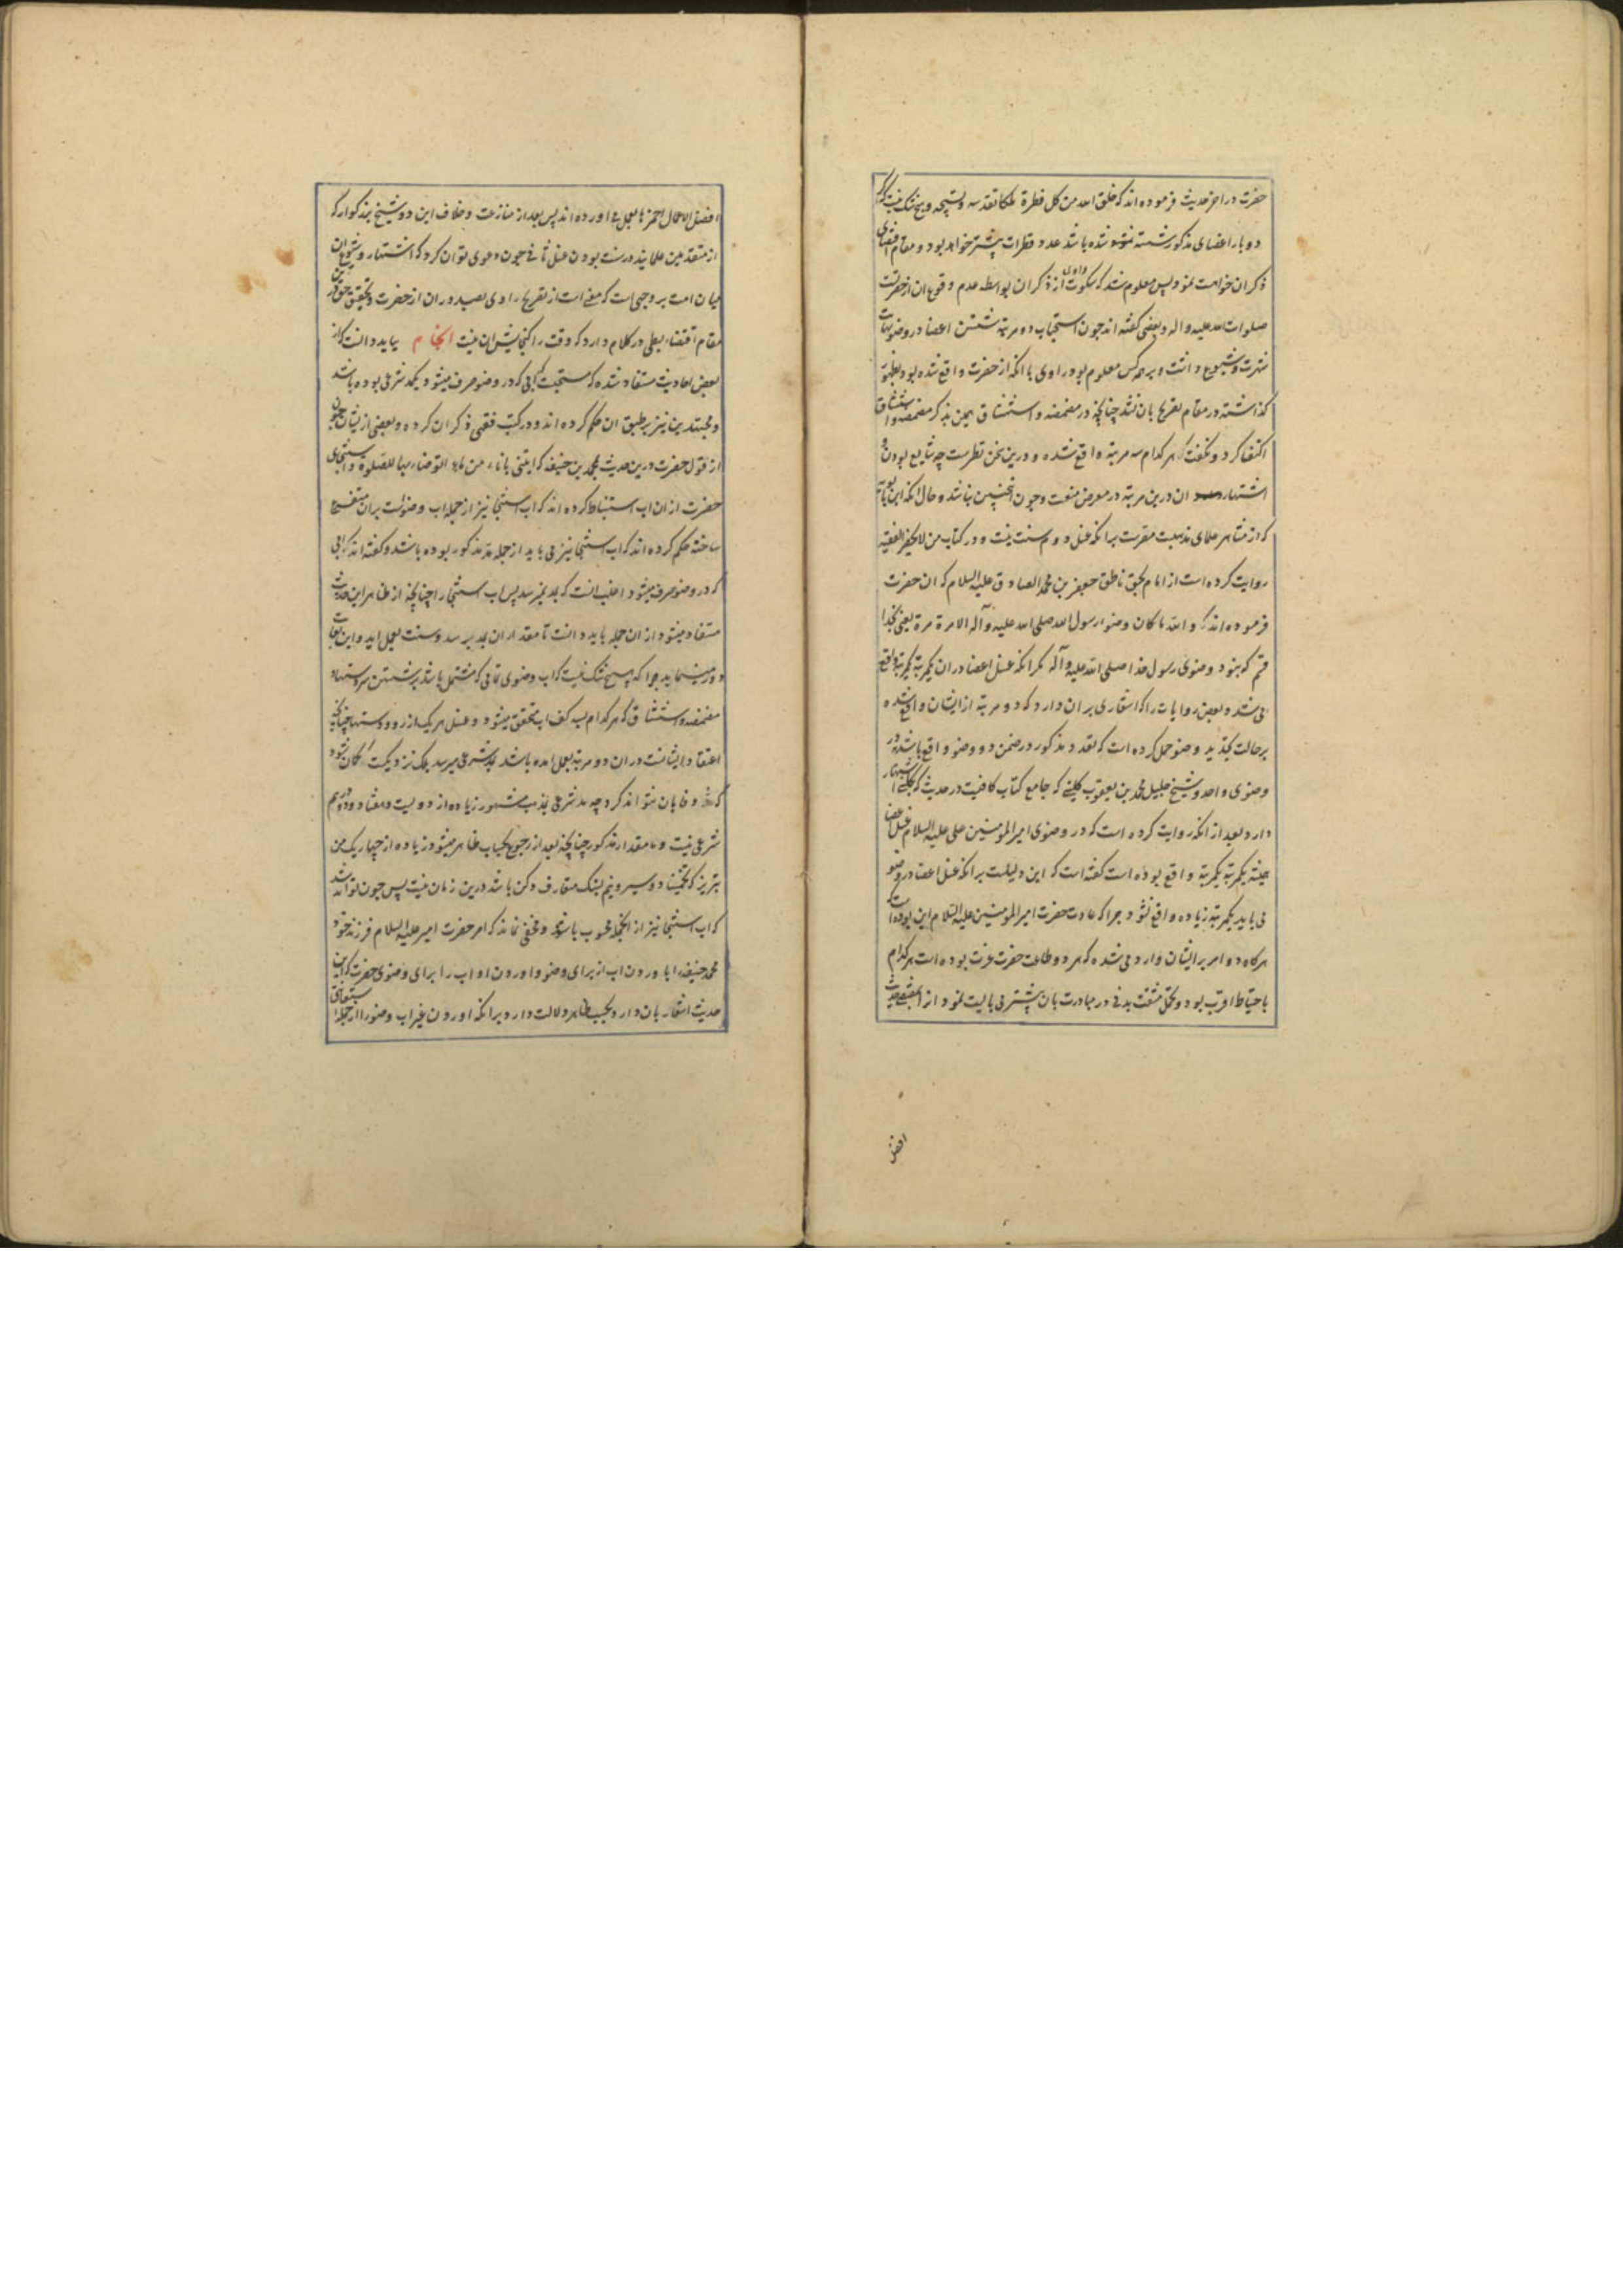 حضرت در اخر حدیث فرموده اند که خلق الله من کل قطرة ملکا یقدسه و یسبحه و هیچ شک نیست که اگر
دو بار اعضای مذکور شسته شده باشد عدد قطرات بیشتر خواهد بود و مقام اقتضای
ذکر ان خواهد نمود پس معلوم شد که سکوت راوی از ذکر ان بواسطه عدم وقوع ان از حضرتست
صلوات الله علیه و اله و بعضی گفته اند چون استحباب دو مرتبه شستن اعضا در وضو نهایت
شهرت و شیوع داشت و بر همه کس معلوم بود راوی با انکه از حضرت واقع شده بود بظهور
گذاشته در مقام تصریح بان نشد چنانچه در مضمضه و استنشاق همین بذکر مضمضه و استنشاق
اکتفا کرد و نگفت که هر کدام سه مرتبه واقع شده و درین سخن نظرست چه شایع بودن و
اشتهار ان درین مرتبه در معرض منعست و چون چنین نباشد و حال انکه ابن بابویه
که از مشاهیر علمای مذهبست مقرست برانکه غسل دوم سنت نیست و در کتاب من لا یحضر الفقیه
روایت کرده است از امام بحق ناطق جعفر بن محمد الصادق علیه السلام که ان حضرت
فرموده اند که و الله ما کان وضوء رسول الله صلی الله علیه و آله الا مرة مرة یعنی بخدا
قسم که نبود وضوی رسول خدا صلی الله علیه و آله مکر انکه غسل اعضا در ان یکمرتبه یکمرتبه واقع
می شد و بعضی روایات را که اشعاری بر ان دارد که دو مرتبه از ایشان واقع شده
بر حالت تجدید وضو حمل کرده است که تعدد مذکور در ضمن دو وضو واقع باشد نه در
وضوی واحد و شیخ جلیل محمد بن یعقوب کلینی که جامع کتاب کافیست در حدیث که بکلینی اشتهار
دارد بعد از انکه روایت کرده است که در وضوی امیر المؤمنین علی علیه السلام غسل اعضا
همیشه یکمرتبه یکمرتبه واقع بوده است گفته است که این دلیلست برانکه غسل اعضا در وضو
می باید یکمرتبه زیاده واقع نشود چرا که عادت حضرت امیر المؤمنین علیه السلام این بوده است که
هرکاه دو امر بر ایشان وارد می شده که هر دو طاعت حضرت عزت بوده است هر کدام
باحتیاط اقرب بود و تحمل مشقت بدنی در مبادرت بان بیشتر می بایست نمود از
افضل
افضل الاعمال احمزها بعمل می اورده اند پس بعد از منازعت و خلاف این دو شیخ بزرکوار که
از متقدمین علمایند در سنت بودن غسل ثانی چون دعوی توان کرد که اشتهار و شیوع ان
میان امت بر وجهی است که مغنی است از تصریح راوی بصدور ان از حضرت و تحقیق حق درین
مقام اقتضاء بسطی در کلام دارد که وقت را کنجایش ان نیست انجام بباید دانست که از
بعض احادیث مستفاد شده که مستحبست که ابی که در وضو صرف میشود یکمد شرعی بوده باشد
و مجتهدین نیز بر طبق ان حکم کرده اند و در کتب فقهی ذکر ان کرده و بعضی ازیشان چون
از قول حضرت درین حدیث بمحمد بن حنیفه که ایتنی باناء من ماء اتوضاء به للصلوة و استنجای
حضرت از ان اب استنباط کرده اند که اب استنجا نیز از جمله اب وضواست بران متفرع
ساخته حکم کرده اند که اب استنجا نیز می باید از جمله مد مذکور بوده باشد و گفته اند که ابی
که در وضو صرف میشود اغلب انست که بمد نمیرسد پس اب استنجا را چنانچه از ظاهر این حدیث
مستفاد میشود از ان جمله باید دانست تا مقدار ان بمد برسد و سنت بعمل اید و این بغایت
دور مینماید چرا که هیچ شک نیست که اب وضوی تمامی که مشتمل باشد بر شستن دستها و
مضمضه و استنشاق که هر کدام بسه کف اب متحقق میشود و غسل هر یک از رو و دستها چنانچه
اعتقاد ایشانست در ان دو مرتبه بعمل امده باشد بمد شرعی میرسد بلکه نزدیکست که ان نشود
که وفا بان نتواند کرد چه مد شرعی بمذهب مشهور زیاده از دویست و هفتاد و دو درهم
شرعی نیست و مقدار مذکور چنانچه بعد از رجوع بحساب ظاهر میشود زیاده از چهار یک من
تبریز که تخمینا دو سیر و نیم بسنک متعارف دکن باشد درین زمان نیست پس چون تواند شد
که اب استنجا نیز از انجمله محسوب باشد و مخفی نماند که امر حضرت امیر علیه السلام فرزند خود
محمد حنیفه را باوردن اب از برای وضو و اوردن او اب را برای وضوی حضرت که این
حدیث اشعار بان دارد بحسب ظاهر دلالت دارد برانکه اوردن غیر اب وضو را از جمله استعانتی